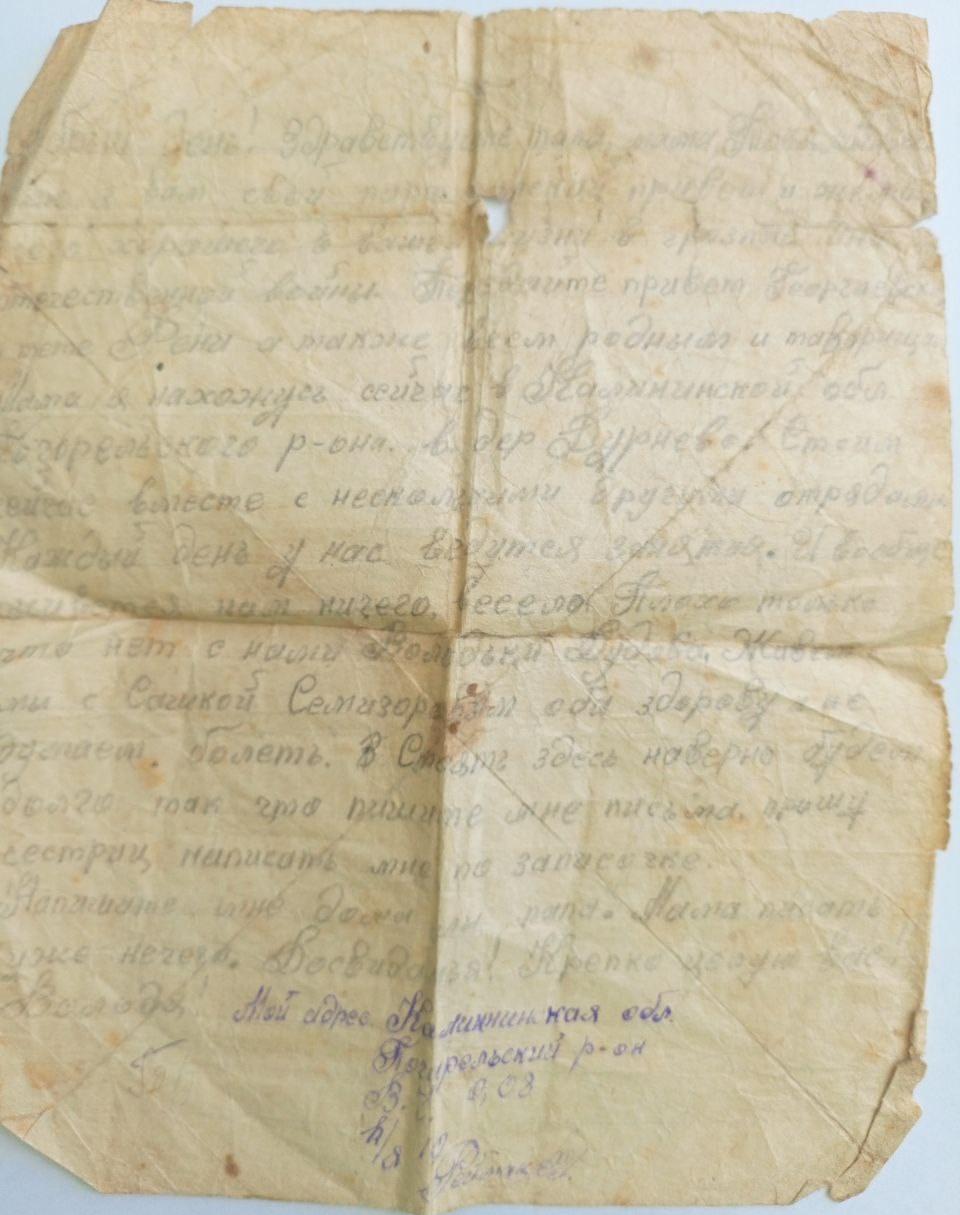 День! Здравствуйте папа, мама
я вам свой партизанский привет и
хорошего в вашей жизни в грозные дни
отечественной войны. Передайте привет
тете Фени а также всем родным и
Мама я нахожусь сейчас в Калининской обл.
Погорельского р-она. в дер Дурнево. Стоим
сейчас вместе с несколькими другими отрядами
Каждый день у нас ведутся занятия. И вообще
живется нам ничего, весело. Плохо только
что нет с нами Володьки Живем
мы с Сашкой Семизоровым оба здоровы и не
думаем болеть. В Стоять здесь наверно будем
долго так что пишите мне письма. прошу
сестриц написать мне по записочке.
Напишите мне дома ли папа. Мама писать
уже нечего. Досвиданья! Крепко целую вас
Володя!
Мой адрес Калининская обл.
Погорельский р-он
В.
п/я